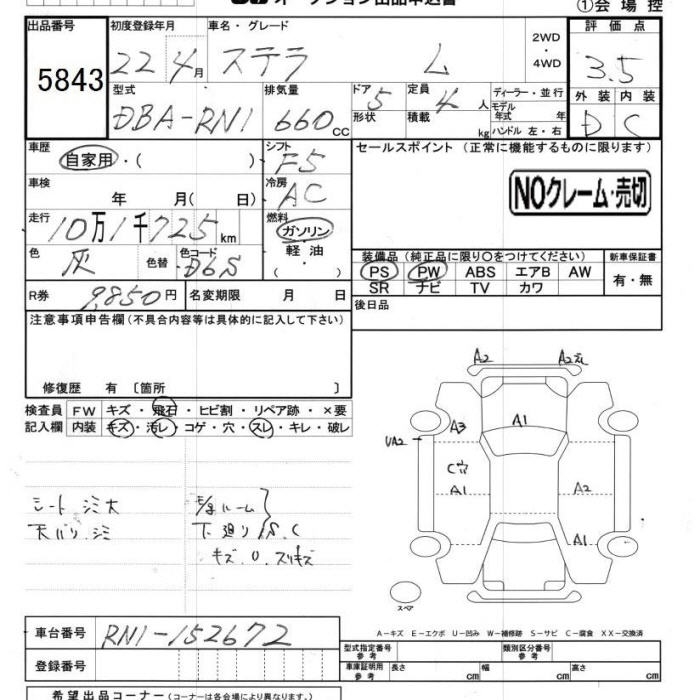 オークション出品申込書
①会場控
出品番号 初度登録年月 車名・グレード 2WD ・ 4WD 評価点
5843 22年4月 ステラ L 3.5
型式 排気量 ドア 定員 ディーラー・並行 外装 内装
DBA-RN1 660cc 5 4人 モデル年式 年 D C
形状 積載 kg ハンドル 左・右
車歴 シフト セールスポイント (正常に機能するものに限ります)
自家用・( ) F5
車検 冷房 NOクレーム・売切
年 月( 日) AC
走行 燃料
10万1千725km ガソリン
色 色替 色コード ・軽油・
灰 D6S ( )
装備品(純正品に限り○をつけてください) 新車保証書
PS PW ABS エアB AW 有・無
SR ナビ TV カワ
R券 9,850円 名変期限 月 日 後日品
注意事項申告欄(不具合内容等は具体的に記入して下さい)
修復歴 有 〔箇所 〕
検査員 FW キズ・飛石・ヒビ割・リペア跡・×要
記入欄 内装 キズ・汚レ・コゲ・穴・スレ・キレ・破レ
A2 A2
A1
A3
UA2
C
A1 A2
A1
シート シミ大 ルーム
天バリ シミ 下廻り S.C
キズ.U.スリキズ
スペア
A-キズ E-エクボ U-凹み W-補修跡 S-サビ C-腐食 XX-交換済
車台番号 RN1-152672
型式指定番号 参考 類別区分番号 参考
登録番号 車庫証明用 参考 長さ cm 幅 cm 高さ cm
希望出品コーナー(コーナーは各会場により異なります。)